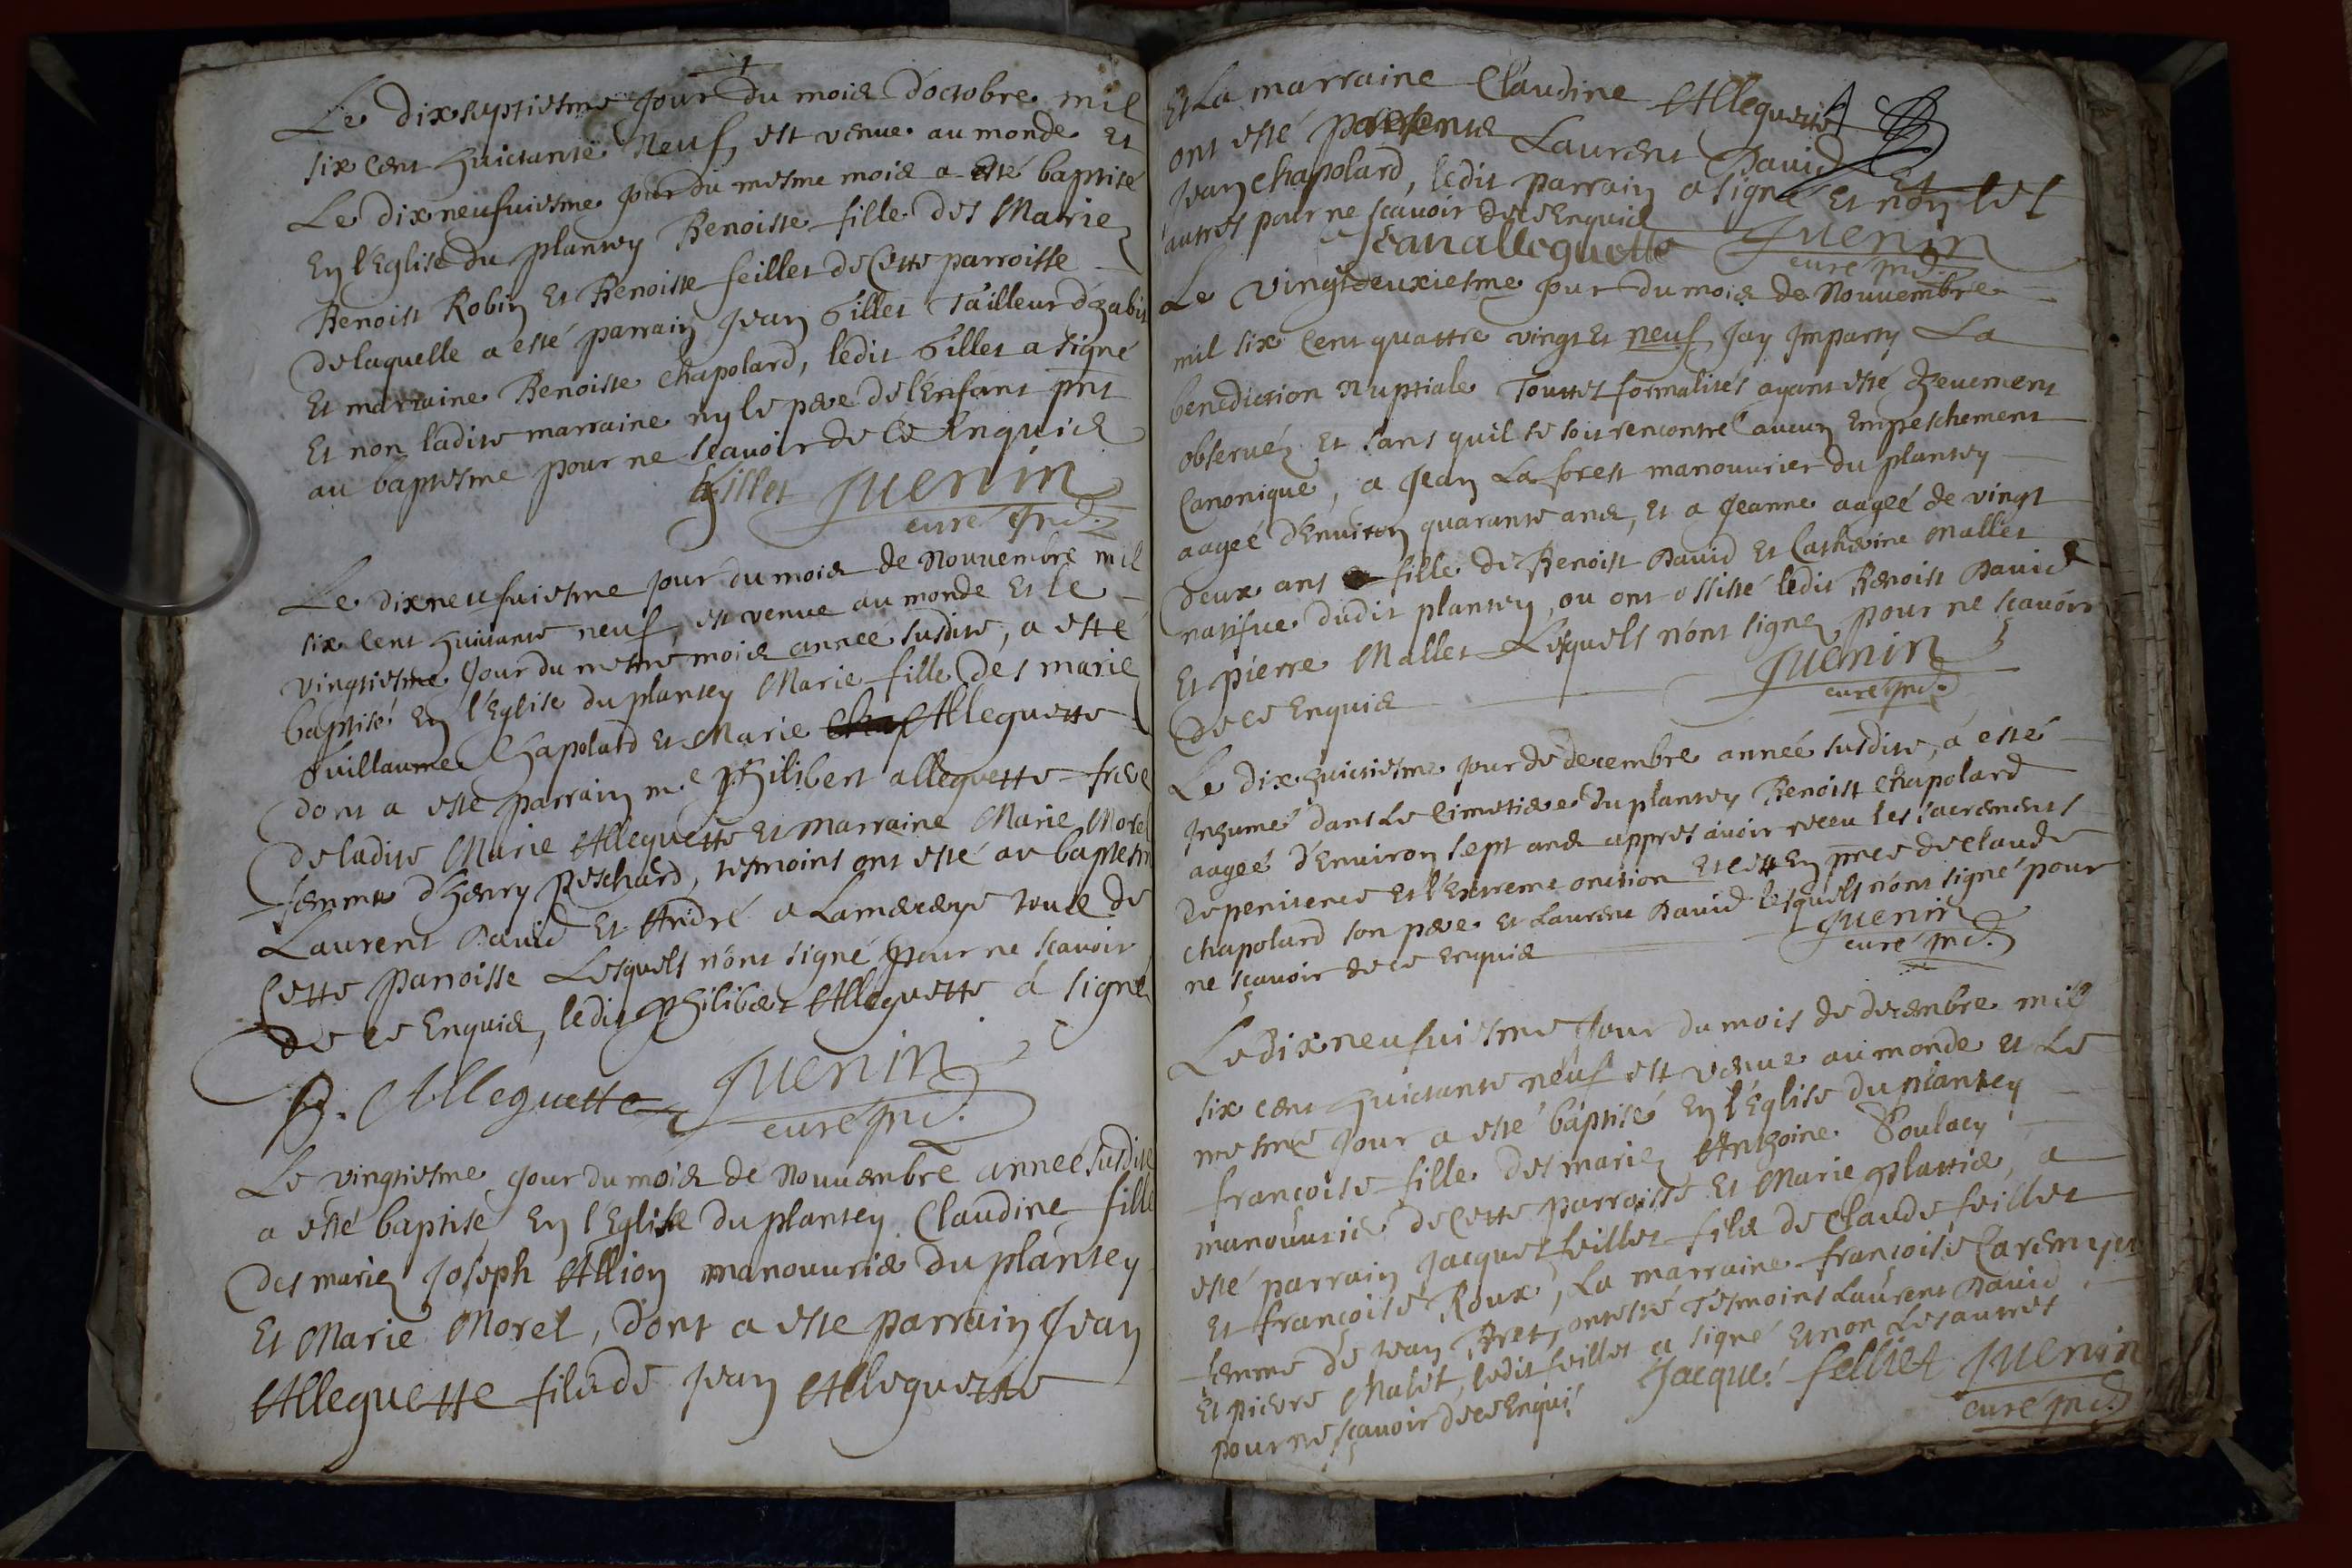 Le dixseptiesme Jour du mois d'octobre mil
six cent huictante Neuf, est venue au monde Et
Le dixneufuiesme Jour du mesme mois a esté baptisé
En l'Eglise du plantey Benoiste fille des Mariez
Benoist Robin Et Benoiste feillet de Cette parroisse
de laquelle a esté parrain Jean Gillet Tailleur d'habit
Et marraine Benoiste Chapolard, ledit Gillet a signé
Et non ladite marraine ny le pere de l'Enfant pnt
au baptesme pour ne scauoir de ce Enquis
Gillet Juenin
curé
Le dixneufuiesme jour du mois de Nouuembre mil
six Cent huictante neuf, est venue au monde Et le
vingtiesme Jour du mesme mois anneé susdite, a esté
baptisé En l'Eglise du plantey Marie fille des mariez
Guillaume Chapolard Et Marie Alleguette
dont a esté parrain me Philibert alleguette frere
de ladite Marie Alleguette Et marraine Marie Morel
femme d'henry Peschard, tesmoins ont esté au baptesm
Laurent Dauid Et André tous de
Cette parroisse Lesquels n'ont signé pour ne scauoir
de ce Enquis, ledit Philibert Alleguette a signé
P. Alleguette Juenin
curé
Le vingtiesme Jour du mois de Nouuembre anneé susdite
a esté baptisé En l'Eglise du plantey Claudine fille
des mariez Joseph Allion manouurier du plantey
Et Marie Morel, dont a esté parrain Jean
Alleguette fils de Jean Alleguette
Et La marraine Claudine Alleguette
ont esté presents Laurent Dauid Et
Jean Chapolard, ledit parrain a signé Et non les
autres pour ne scauoir de ce Enquis
Jean alleguette Juenin
curé
Le vingtdeuxiesme Jour du mois de Nouuembre
mil six Cent quattre vingt Et neuf Jay Imparty La
benediction Nuptiale Touttes formalités ayant esté
obserueéz Et sans quil se soit rencontré aucun Empeschement
Canonique, a Jean La forest manouurier du plantey
aageé d'Enuiron quarante ans, Et a Jeanne aageé de vingt
deux ans fille de Benoist Dauid Et Catherine Mallet
natifue dudit plantey, ou ont assisté ledit Benoist Dauid
Et Pierre Mallet Lesquels n'ont signé pour ne scauoir
de ce Enquis
Juenin
curé
Le dixhuictiesme jour de decembre anneé susdite, a esté
Inhumé dans Le Cimetiere du plantey Benoist Chapolard
aageé d'Enuiron sept ans appres auoir receu les sacrements
de penitence Et l'Extreme onction Et cest En pnce de Claude
Chapolard son pere Et Laurent Dauid lesquels n'ont signé pour
ne scauoir de ce Enquis
Juenin
curé
Le dixneufuiesme Jour du mois de decembre mil
six cent huictante neuf est venue au monde et Le
mesme Jour a esté baptisé En l'Eglise du plantey
françoise fille des mariez Anthoine Poulacy
manouurier de Cette parroisse Et Marie Plattier, a
esté parrain Jacques feillet fils de Claude feillet
Et françoise Roux, La marraine françoise
femme de Jean Bret, ont esté Tesmoins Laurent Dauid
Et Pierre Malet, ledit feillet a signé Et non Les autres
pour ne scauoir de ce Enquis
Jacque felliet Juenin
curé